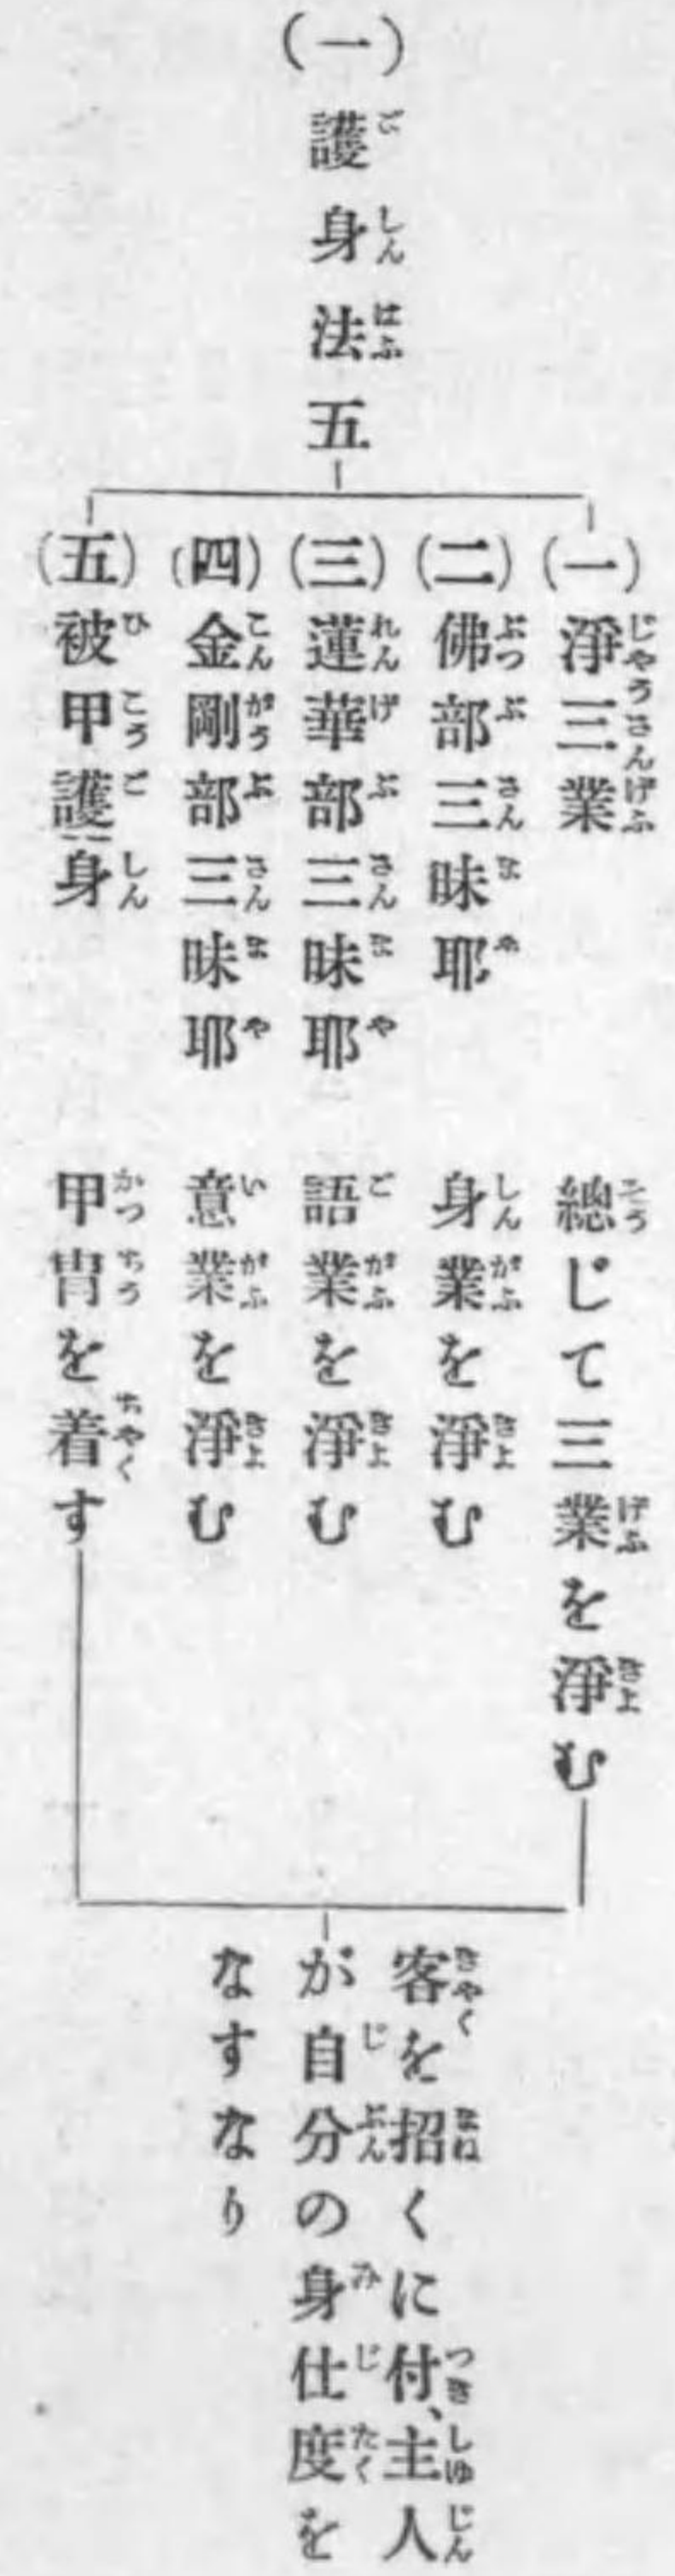 (一)護身法五
(一)淨三業 總じて三業を淨む
(二)佛部三昧耶 身業を淨む
(三)蓮華部三昧耶 語業を淨む
(四)金剛部三昧耶 意業を淨む
(五)被甲護身 甲冑を着す
客を招くに付、主人
が自分の身仕度を
なすなり